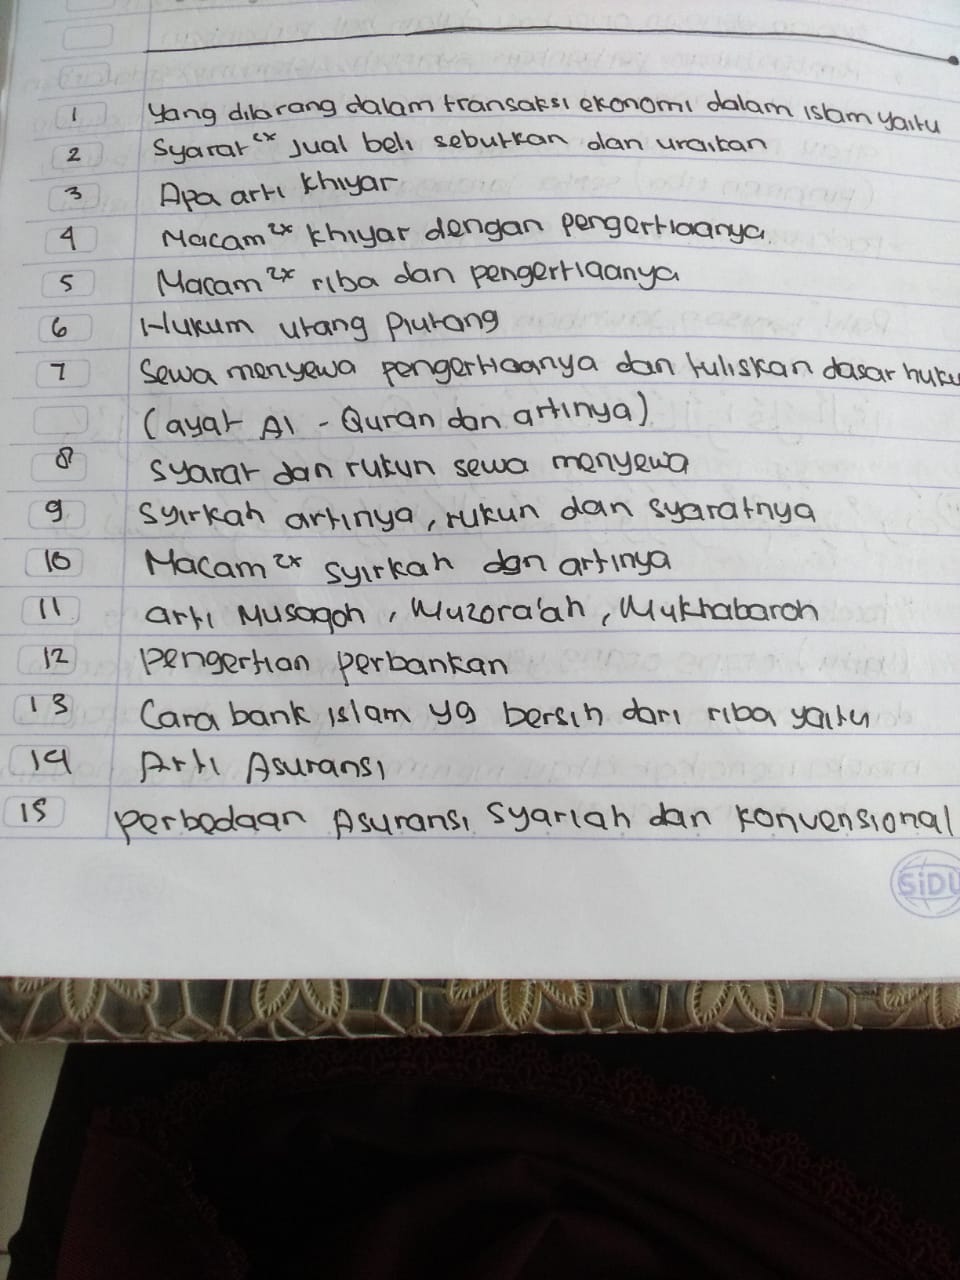 1 Yang dilarang dalam transaksi ekonomi dalam islam yaitu
2 Syarat 2x jual beli sebutkan dan uraikan
3 Apa arti khiyar
4 Macam 2x khiyar dengan pengertiaanya
5 Macam 2x riba dan pengertiaanya
6 Hukum utang piutang
7 Sewa menyewa pengertiaanya dan tuliskan dasar huku
(ayat Al - Quran dan artinya)
8 Syarat dan rukun sewa menyewa
9 Syirkah artinya, rukun dan syaratnya
10 Macam 2x syirkah dan artinya
11 arti Musaqoh, Muzora'ah, Mukhabaroh
12 pengertian perbankan
13 Cara bank islam yg bersih dari riba yaitu
14 Arti Asuransi
15 perbedaan Asuransi Syariah dan konvensional
SiDU